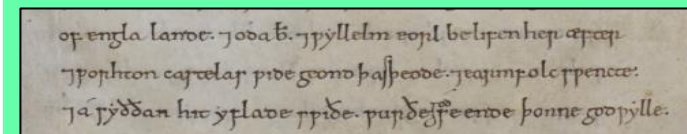 of engla lande. ⁊ oda b̄. ⁊ ƿyllelm eorl belifen her æfter
⁊ ƿorhton castelas ƿide geond þas þeode. ⁊ earm folc sƿencte.
⁊ á syððan hit yflade sƿiðe. ƿurðe god se ende þonne god ƿylle.